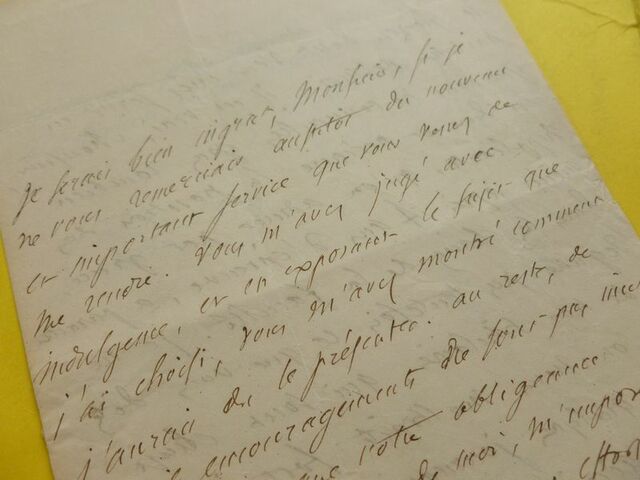 je serais bien ingrat, Monsieur, si je
ne vous remerciais aussitôt du nouveau
et important service que vous venez de
me rendre. Vous m'avez jugé avec
indulgence, et en exposant le sujet que
j'ai choisi, vous m'avez montré comment
j'aurais dû le présenter. au reste, de
encouragements
que votre obligeance
de moi, m'impor
effort